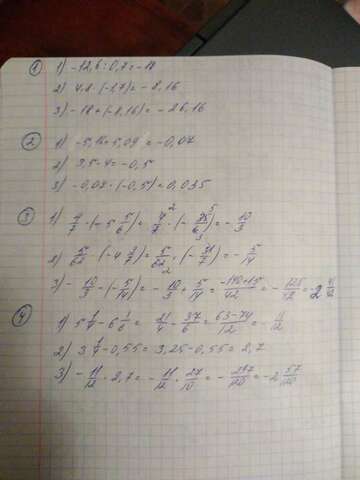 ① 1) -12,6 : 0,7 = -18
2) 4,8 · (-1,7) = -8,16
3) -18 + (-8,16) = -26,16
② 1) -5,16 + 5,09 = -0,07
2) 3,5 - 4 = -0,5
3) -0,07 · (-0,5) = 0,035
③ 1) 4/7 · (-5 5/6) = 4/7 · (-35/6) = -10/3
2) 5/62 · (-4 3/7) = 5/62 · (-31/7) = -5/14
3) -10/3 - (-5/14) = -10/3 + 5/14 = (-140+15)/42 = -125/42 = -2 41/42
④ 1) 5 1/4 - 6 1/6 = 21/4 - 37/6 = (63-74)/12 = -11/12
2) 3 1/4 - 0,55 = 3,25 - 0,55 = 2,7
3) -11/12 · 2,7 = -11/12 · 27/10 = -297/120 = -2 57/120